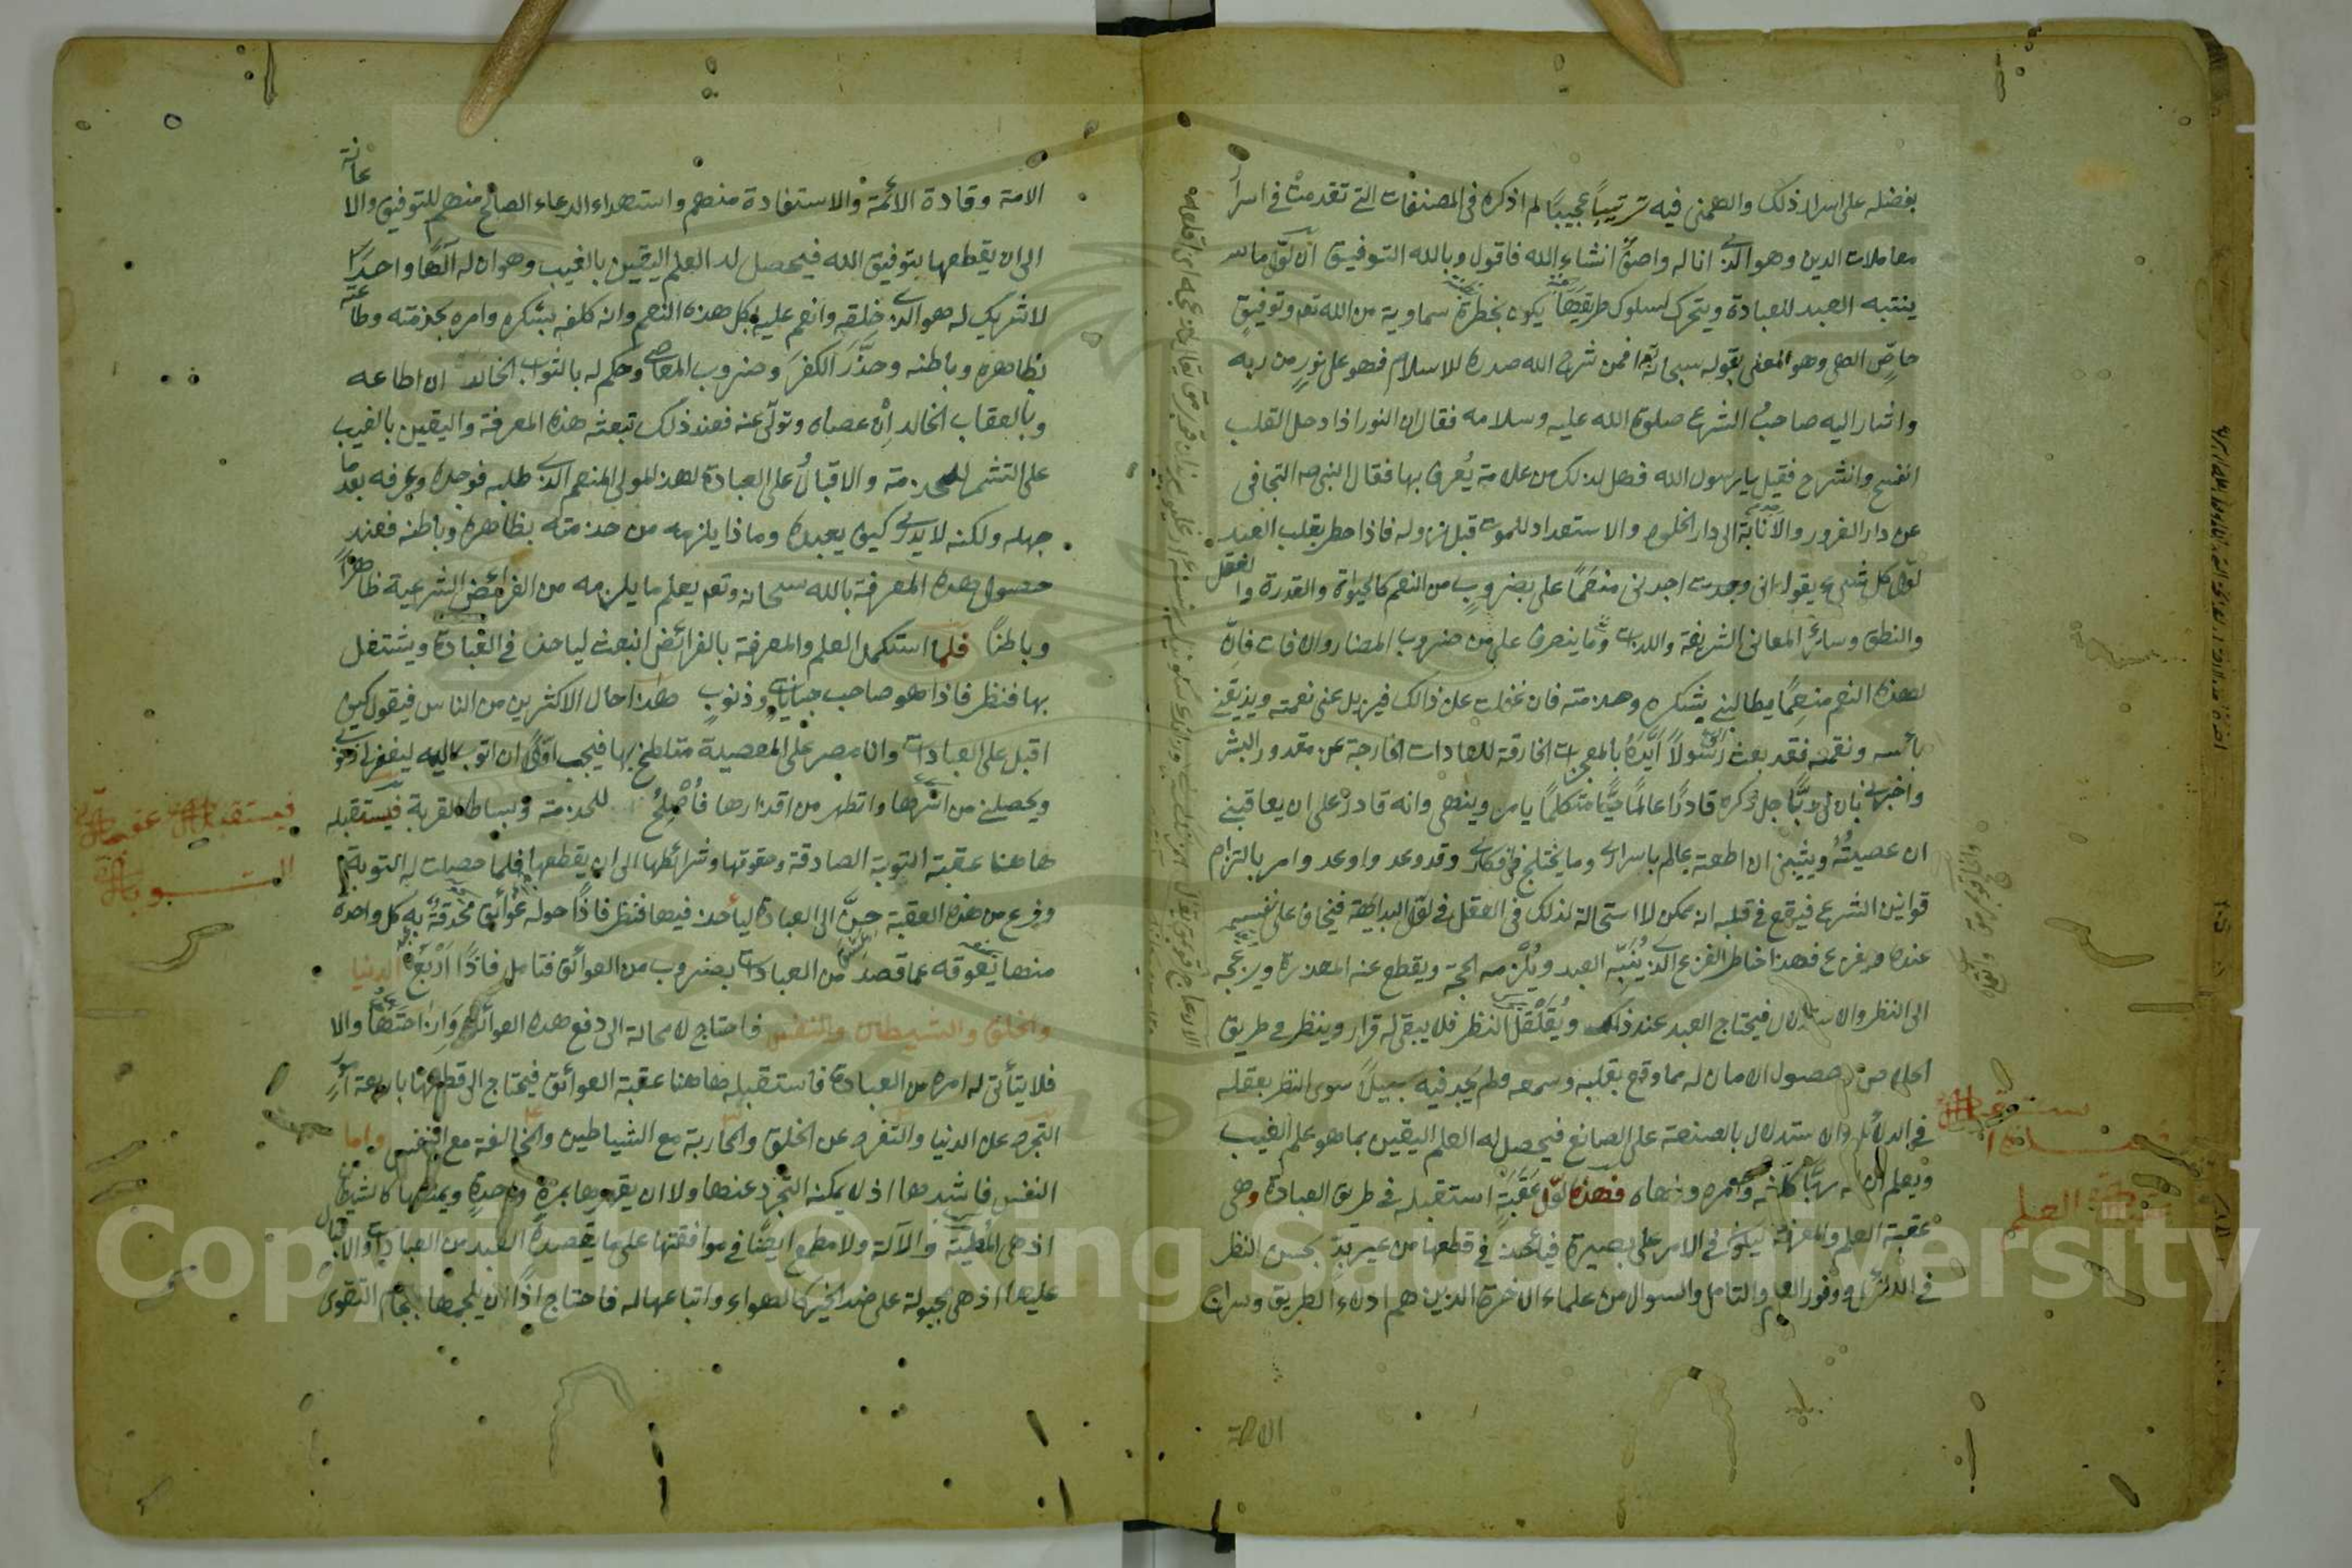 بفضله على اسرار ذلك والهمني فيه ترتيبا عجيبا لم اذكره في المصنفات التي تقدمت في اسرار
معاملات الدين وهو الذي انا له واصف انشاء الله فاقول وبالله التوفيق ان اول ما
ينتبه العبد للعبادة ويتحرك لسلوك طريقها يكون بخطرة سماوية من الله تعم وتوفيق
خاص الهي وهو المعني بقوله سبحانه افمن شرح الله صدره للاسلام فهو على نور من ربه
واشار اليه صاحب الشرع صلوة الله عليه وسلامه فقال ان النور اذا دخل القلب
انفسح وانشرح فقيل يا رسول الله فهل لذلك من علامة يعرف بها فقال النبي صه التجافي
عن دار الغرور والانابة الى دار الخلود والاستعداد للموت قبل نزوله فاذا خطر بقلب العبد
اول كل شيء يقول اني وجدت اجدني منعما على بضروب من النعم كالحيوة والقدرة والعقل
والنطق وسائر المعاني الشريفة واللذات وما ينصرف على من ضروب المضار والافات فان
لهذه النعم منعما يطالبني بشكره وخدمته فان غفلت عن ذالك فيزيل عني نعمته ويذيقني
بأسه ونقمته فقد بعث الي رسولا ايده بالمعجزات الخارقة للعادات الخارجة عن مقدور البشر
واخبرني بان لي ربا جل ذكره قادرا عالما حيا متكلما يامر وينهى وانه قادر على ان يعاقبني
ان عصيته ويثيبني ان اطعته عالم باسراري وما يختلج في افكاري وقد وعد واوعد وامر بالتزام
قوانين الشرع فيقع في قلبه انه ممكن لا استحالة لذلك في العقل في اول البداهة فيخاف على نفسه
عنده ويفزع فهذا خاطر الفزع الذي ينبه العبد ويلزمه الحجة ويقطع عنه المعذرة ويزعجه
الى النظر والاستدلال فيحتاج العبد عند ذلك ويقلقل النظر فلا يبقى له قرار وينظر في طريق
الخلاص حصول الامان له مما وقع بقلبه وسمعه فلم يجد فيه سبيلا سوى النظر بعقله
في الدلائل والاستدلال بالصنعة على الصانع فيحصل له العلم اليقين بما هو علم الغيب
ويعلم ان له ربا كلفه وامره ونهاه فهذه اول عقبة استقبله في طريق العبادة وهي
عقبة العلم والمعرفة ليكون في الامر على بصيرة فيأخذ في قطعها من غير بد بحسن النظر
في الدلائل ووفور العلم والتامل والسوال من علماء الاخرة الذين هم ادلاء الطريق وسراج
الامة
عقبة العلم
الامة وقادة الائمة والاستفادة منهم واستهداء الدعاء الصالح منهم للتوفيق والاعانة
الى ان يقطعها بتوفيق الله فيحصل له العلم اليقين بالغيب وهو ان له الها واحدا
لا شريك له هو الذي خلقه وانعم عليه بكل هذه النعم وانه كلفه بشكره وامره بخدمته وطاعته
بظاهره وباطنه وحذر الكفر وضروب المعاصي وحكم له بالثواب الخالد ان اطاعه
وبالعقاب الخالد ان عصاه وتولى عنه فعند ذلك تبعثه هذه المعرفة واليقين بالغيب
على التشمر للخدمة والاقبال على العبادة لهذا المولى المنعم الذي طلبه فوجده وعرفه بعد ما
جهله ولكنه لا يدري كيف يعبده وماذا يلزمه من خدمته بظاهره وباطنه فعند
حصول هذه المعرفة بالله سبحانه وتعم يعلم ما يلزمه من الفرائض الشرعية ظاهرا
وباطنا فلما استكمل العلم والمعرفة بالفرائض انبعث لياخذ في العبادة ويشتغل
بها فنظر فاذا هو صاحب جنايات وذنوب هذا حال الاكثرين من الناس فيقول كيف
اقبل على العبادات وانا مصر على المعصية متلطخ بها فيجب اولا ان اتوب اليه ليغفر لي ذنوبي
ويخلصني من اسرها واتطهر من اقذارها فاصلح للخدمة وبساط القربة فيستقبله
هاهنا عقبة التوبة الصادقة وحقوقها وشرائطها الى ان يقطعها فلما حصلت له التوبة
وفرغ من هذه العقبة حن الى العبادة ليأخذ فيها فنظر فاذا حوله عوائق محدقة به كل واحدة
منها يعوقه عما قصد من العبادات بضروب من العوائق فتامل فاذا اربع الدنيا
والخلق والشيطان والنفس فاحتاج لا محالة الى دفع هذه العوائق وازاحتها والا
فلا يتأتى له امره من العبادة فاستقبله هاهنا عقبة العوائق فيحتاج الى قطعها باربعة امور
التجرد عن الدنيا والتفرد عن الخلق والمحاربة مع الشياطين والمخالفة مع النفس واما
النفس فاشدها اذ لا يمكنه التجرد عنها ولا ان يقهرها بمرة واحدة ويمنعها كالشيطان
اذ هي المطية والآلة ولا مطمع ايضا في موافقتها على ما يقصده العبد من العبادات والاقبال
عليها اذ هي مجبولة على ضد الخير كالهواء واتباعها له فاحتاج اذا ان يلجمها بلجام التقوى
فيستقبله عقبة
التوبة
Copyright © King Saud University